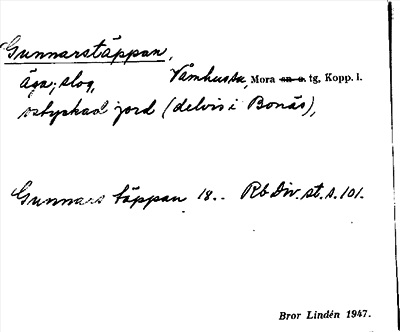 Gunnarstäppan,
äga; slog, Våmhus sn, Mora sn o. tg, Kopp. l.
ostyckad jord (delvis i Bonäs),
Gunnars täppan 18.. Rb Div. st. s. 101.
Bror Lindén 1947.